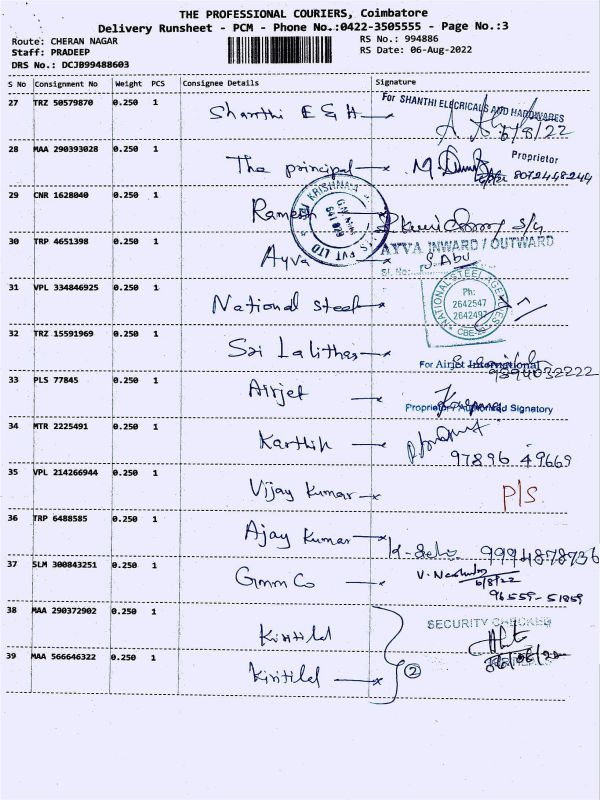 THE PROFESSIONAL COURIERS, Coimbatore
Delivery Runsheet - PCM - Phone No.:0422-3505555 - Page No.:3
Route: CHERAN NAGAR
Staff: PRADEEP
DRS No.: DCJB99488603
RS No.: 994886
RS Date: 06-Aug-2022
S No Consignment No Weight PCS Consignee Details Signature
27 TRZ 50579870 0.250 1 Shanthi E & H
For SHANTHI ELECRICALS AND HARDWARES
6/8/22
Proprietor
28 MAA 290393028 0.250 1 The principal
8072448249
29 CNR 1628040 0.250 1 Ramesh
30 TRP 4651398 0.250 1 Ayva
AYVA INWARD / OUTWARD
S. Abu
Sl. No:
31 VPL 334846925 0.250 1 National steel
NATIONAL STEEL AGENCIES
Ph:
2642547
2642497
CBE-29
32 TRZ 15591969 0.250 1 Sri Lalithas
33 PLS 77845 0.250 1 Airjet
For Airjet International
Proprietor / Authorised Signatory
34 MTR 2225491 0.250 1 Karthik
97896 49669
35 VPL 214266944 0.250 1 Vijay Kumar
P/S
36 TRP 6488585 0.250 1 Ajay Kumar
9994878736
37 SLM 300843251 0.250 1 Gmm Co
6/8/22
96559-51859
38 MAA 290372902 0.250 1 Kiritild
SECURITY CHECKED
39 MAA 566646322 0.250 1 Kiritild
2